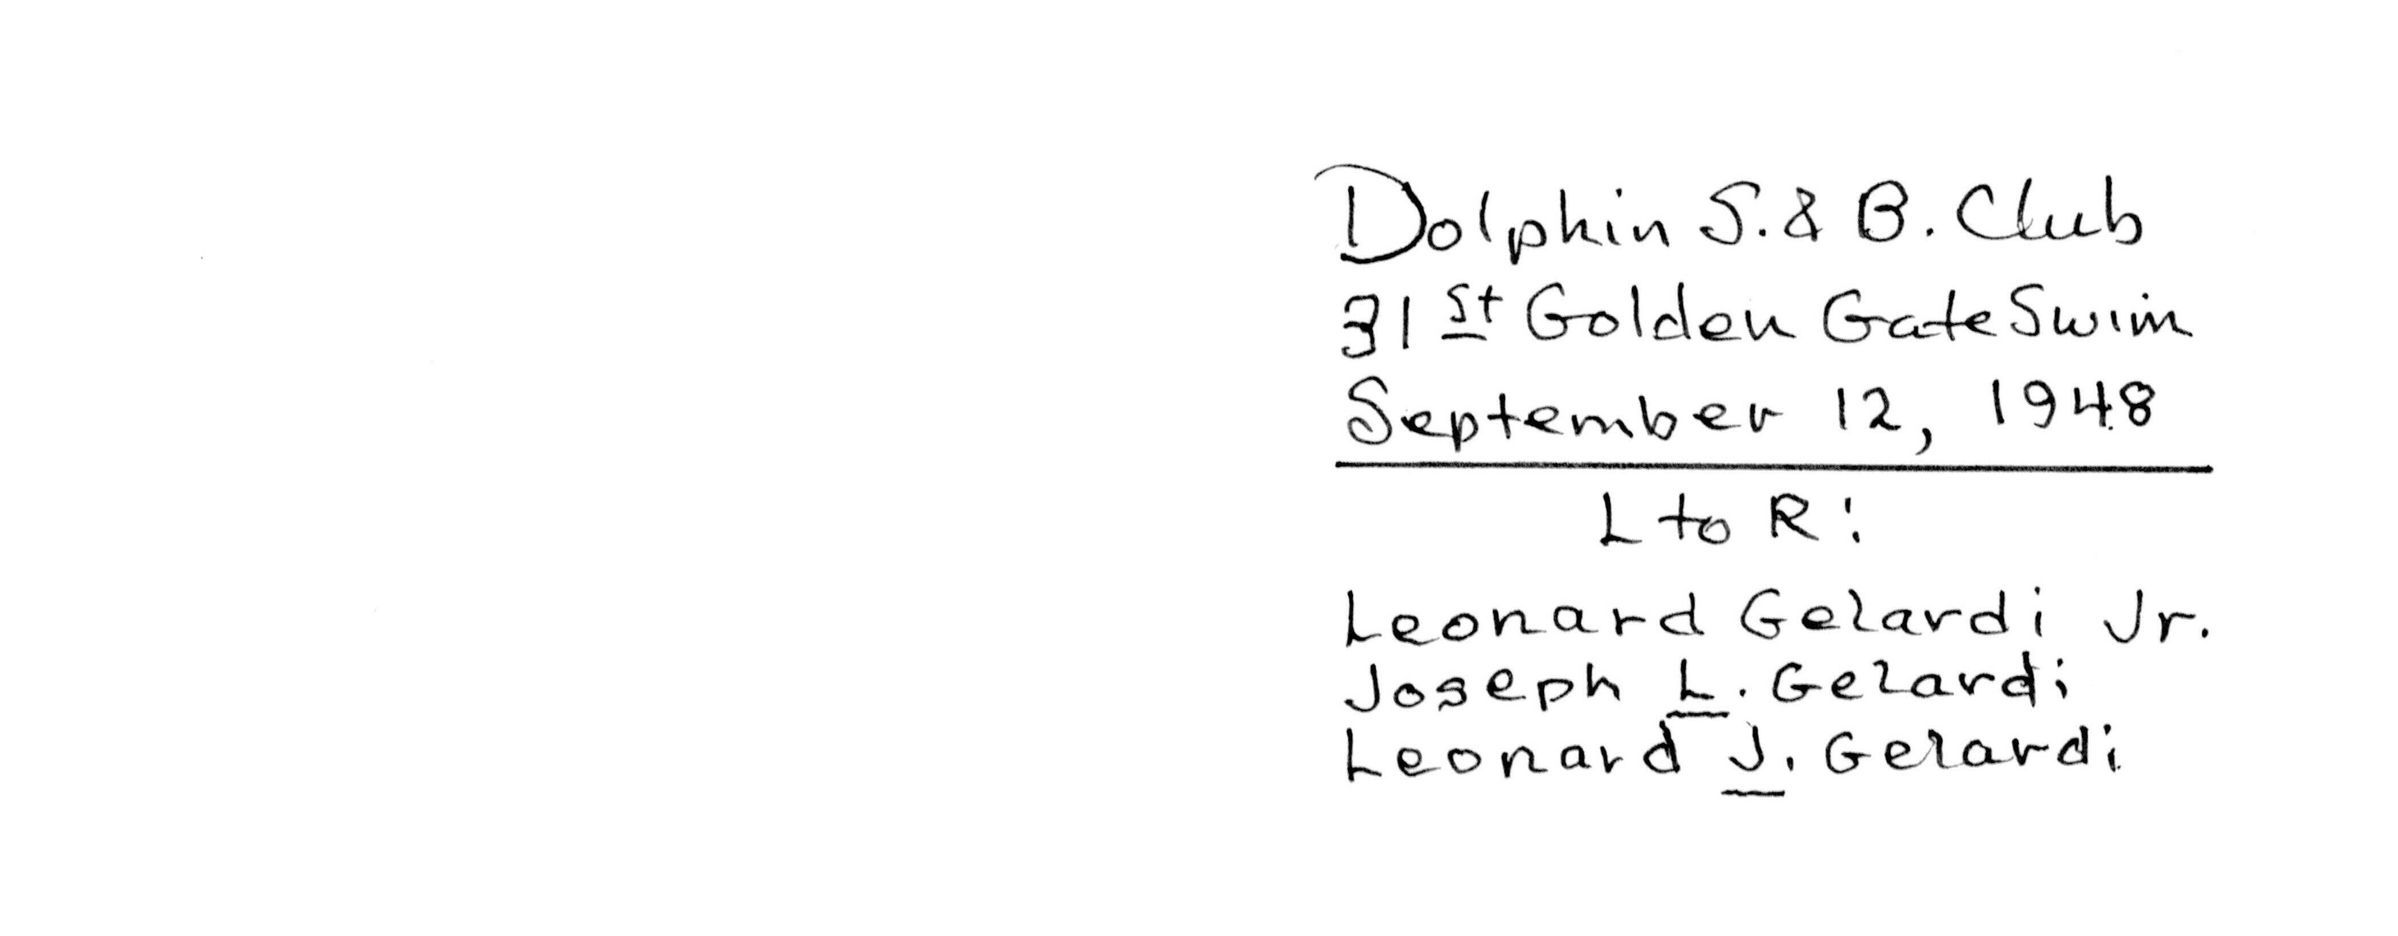 Dolphin S. & B. Club
31st Golden Gate Swim
September 12, 1948
L to R:
Leonard Gelardi Jr.
Joseph L. Gelardi
Leonard J. Gelardi